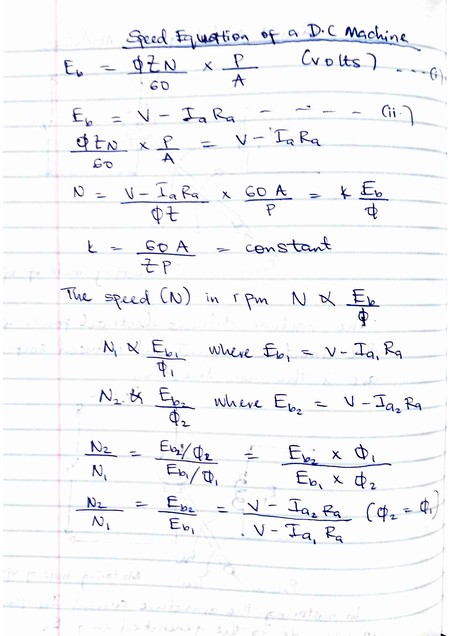 Speed Equation of a D.C Machine
E_b = ΦZN/60 × P/A (volts) ---- (i)
E_b = V - I_a R_a - - - - (ii)
ΦZN/60 × P/A = V - I_a R_a
N = V - I_a R_a/ΦZ × 60 A/P = k E_b/Φ
k = 60 A/ZP = constant
The speed (N) in rpm N ∝ E_b/Φ
N_1 ∝ E_b1/Φ_1 where E_b1 = V - I_a1 R_a
N_2 ∝ E_b2/Φ_2 where E_b2 = V - I_a2 R_a
N_2/N_1 = E_b2/Φ_2/E_b1/Φ_1 = E_b2 × Φ_1/E_b1 × Φ_2
N_2/N_1 = E_b2/E_b1 = V - I_a2 R_a/V - I_a1 R_a (Φ_2 = Φ_1)